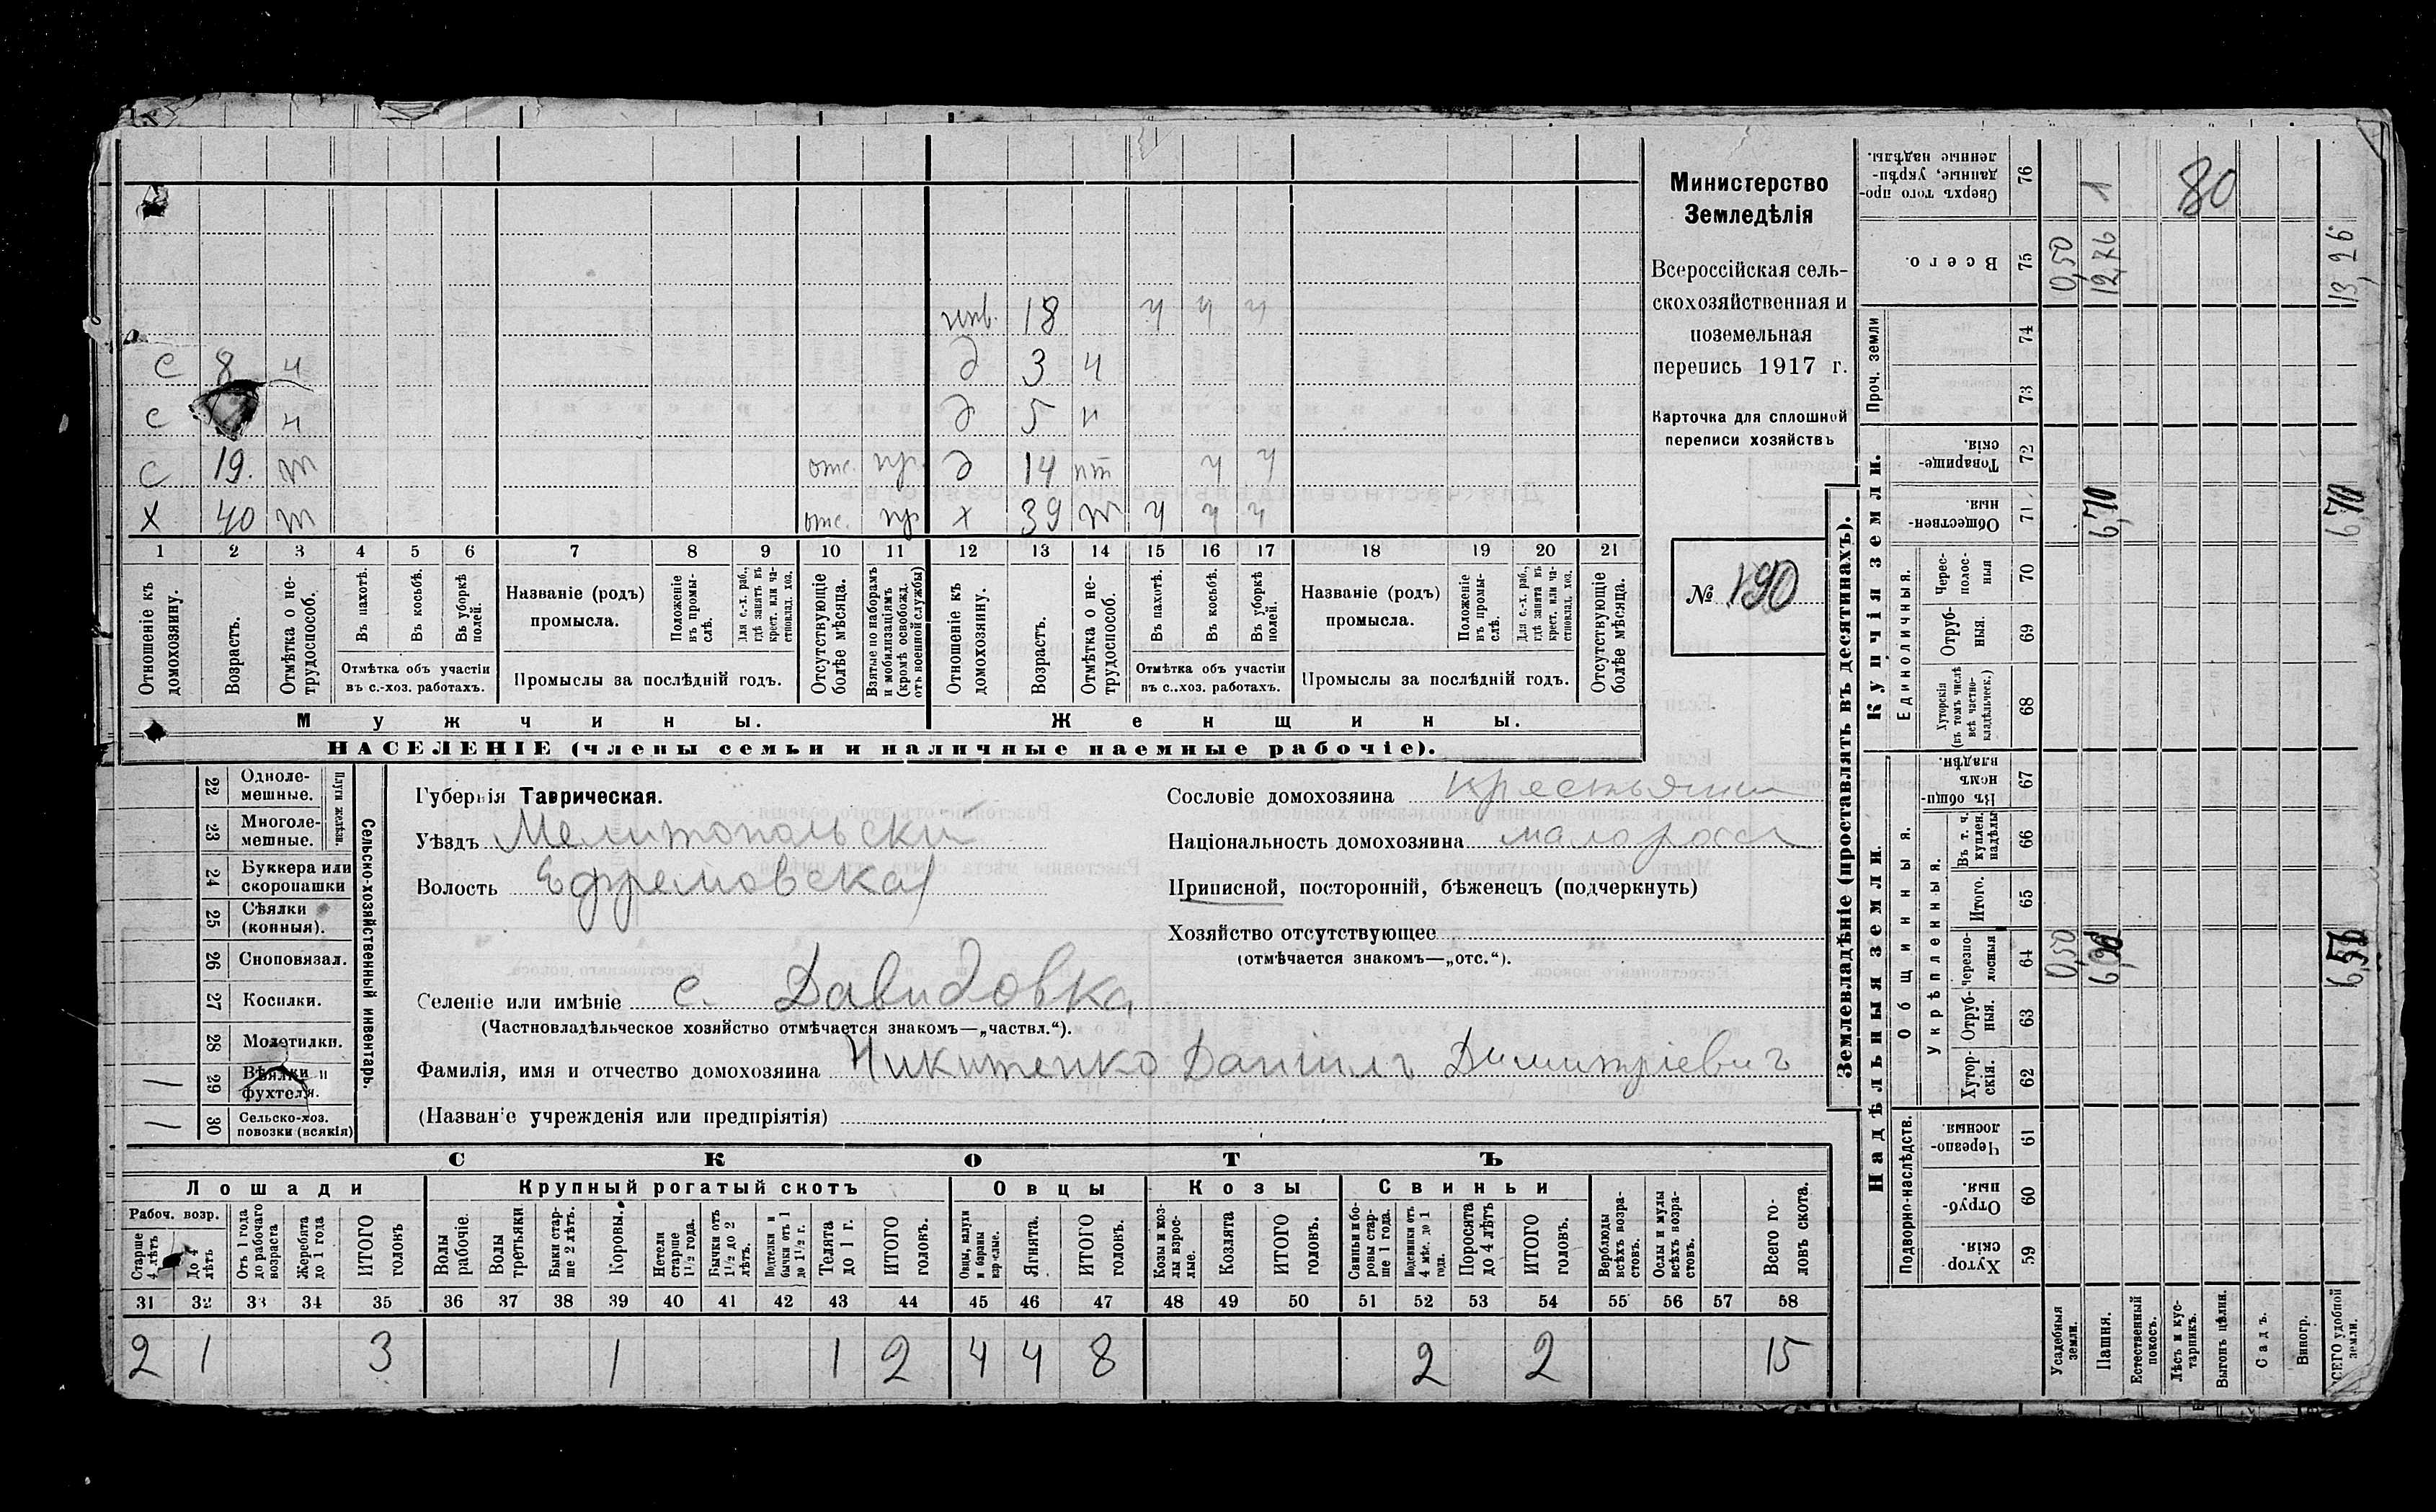 Министерство
Земледѣлія
Всероссійская сель-
скохозяйственная и
поземельная
перепись 1917 г.
Карточка для сплошной
переписи хозяйствъ
№ 190
инв. 18 ч ч ч
с 8 н д 3 н
с н д 5 н
с 19. т отс. пр. д 14 пт ч ч
х 40 т отс. пр х 39 т ч ч ч
1 2 3 4 5 6 7 8 9 10 11 12 13 14 15 16 17 18 19 20 21
Отношеніе къ домохозяину.
Возрастъ.
Отмѣтка о не-трудоспособ.
Въ пахотѣ.
Въ косьбѣ.
Въ уборкѣ полей.
Отмѣтка объ участіи
въ с.-хоз. работахъ.
Названіе (родъ)
промысла.
Положеніе въ промы-слѣ.
Для с.-х. раб., гдѣ занятъ въ крест. или ча-стновлад. хоз.
Промыслы за послѣдній годъ.
Отсутствующіе болѣе мѣсяца.
Взятые по наборамъ и мобилизаціямъ (кромѣ освобожд. отъ военной службы)
Отношеніе къ домохозяину.
Возрастъ.
Отмѣтка о не-трудоспособ.
Въ пахотѣ.
Въ косьбѣ.
Въ уборкѣ полей.
Отмѣтка объ участіи
въ с..хоз. работахъ.
Названіе (родъ)
промысла.
Положеніе въ промы-слѣ.
Для с.-х. раб., гдѣ занята въ крест. или ча-стновлад. хоз.
Промыслы за послѣдній годъ.
Отсутствующіе болѣе мѣсяца.
Мужчины. Женщины.
НАСЕЛЕНІЕ (члены семьи и наличные наемные рабочіе).
22 Одноле-мешные.
23 Многоле-мешные.
Плуги желѣзн.
24 Буккера или скоропашки
25 Сѣялки (конныя).
26 Сноповязал.
27 Косилки.
28 Молотилки.
1 29 Вѣялки и фухтеля.
1 30 Сельско-хоз. повозки (всякія)
Сельско-хозяйственный инвентарь.
Губернія Таврическая.
Уѣздъ Мелитопольски
Волость Ефремовская
Селеніе или имѣніе с. Давидовка
(Частновладѣльческое хозяйство отмѣчается знакомъ—„частвл.“).
Фамилія, имя и отчество домохозяина Никитенко Даніилъ Димитріевичъ
(Названіе учрежденія или предпріятія)
Сословіе домохозяина крестьянин
Національность домохозяина малоросс
Приписной, посторонній, бѣженецъ (подчеркнуть)
Хозяйство отсутствующее
(отмѣчается знакомъ—„отс.“).
СКОТЪ
Лошади Крупный рогатый скотъ Овцы Козы Свиньи
Рабоч. возр.
Старше 4 лѣтъ
До 4 лѣтъ
Отъ 1 года до рабочаго возраста
Жеребята до 1 года
ИТОГО головъ
Волы рабочіе.
Волы третьяки.
Быки стар-ше 2 лѣтъ.
Коровы.
Нетели старше 1½ года.
Бычки отъ 1½ до 2 лѣтъ.
Подтелки и бычки отъ 1 до 1½ г.
Телята до 1 г.
ИТОГО головъ.
Овцы, валухи и бараны взрослые.
Ягнята.
ИТОГО головъ.
Козы и коз-лы взрос-лые.
Козлята
ИТОГО головъ.
Свиньи и бо-ровы стар-ше 1 года.
Подсвинки отъ 4 мѣс. до 1 года.
Поросята до 4 лѣтъ
ИТОГО головъ.
Верблюды всѣхъ возра-стовъ.
Ослы и мулы всѣхъ возра-стовъ.
Всего го-ловъ скота.
31 32 33 34 35 36 37 38 39 40 41 42 43 44 45 46 47 48 49 50 51 52 53 54 55 56 57 58
2 1 3 1 1 2 4 4 8 2 2 15
Землевладѣніе (проставлять въ десятинахъ).
Надѣльныя земли. Купчія земли. Проч. земли
Подворно-наслѣдств.
Общинныя.
Укрѣпленныя.
Единоличныя.
Хутор-скія. 59
Отруб-ныя. 60
Черезпо-лосныя. 61
Хутор-скія. 62
Отруб-ныя. 63
Черезпо-лосныя 64
Итого. 65
Въ т. ч. куплен. надѣлы 66
Въ общин-номъ владѣн. 67
Хуторскія (въ томъ числѣ всѣ частно-владѣльческ.) 68
Отруб-ныя. 69
Черес-полос-ныя 70
Обществен-ныя. 71
Товарище-скія. 72
73
74
Всего. 75
Сверхъ того про-данные, укрѣп-ленные надѣлы. 76
Усадебныя земли. 0,50 0,50
Пашня. 6,70 12,76 1
Естественный покосъ.
Лѣсъ и кус-тарникъ.
Выгонъ цѣлин.
Садъ.
Виногр.
ВСЕГО удобной земли. 6,70 13,26
80